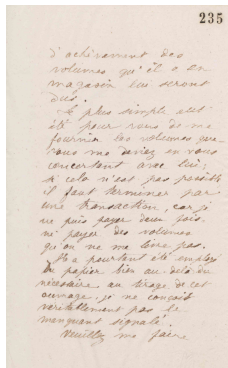 235
d'achèvement des
volumes qu'il a en
magasin lui seront
dus.
Le plus simple eut
été pour vous de me
fournir les volumes que
vous me deviez en vous
concertant avec lui;
si cela n'est pas possible
il faut terminer par
une transaction, car je
ne puis payer deux fois
ni payer des volumes
qu'on ne me livre pas.
Il a pourtant été employé
du papier bien au-delà du
nécessaire au tirage de cet
ouvrage, je ne conçois
véritablement pas le
manquant signalé.
Veuillez me faire